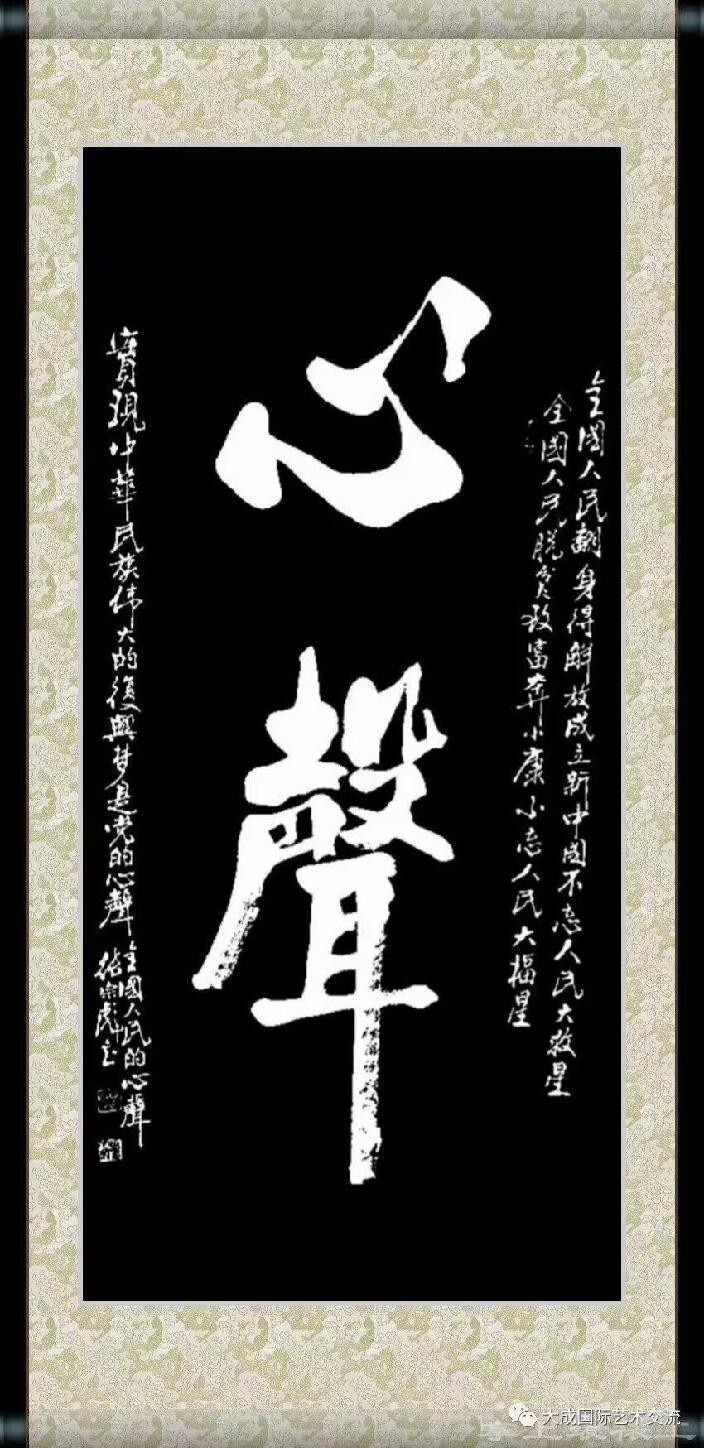 全國人民翻身得解放成立新中國不忘人民大救星
全國人民脱贫致富奔小康不忘人民大福星
心聲
實現中華民族偉大的復興梦是党的心聲
全國人民的心聲
宗彪书
大成国际艺术交流